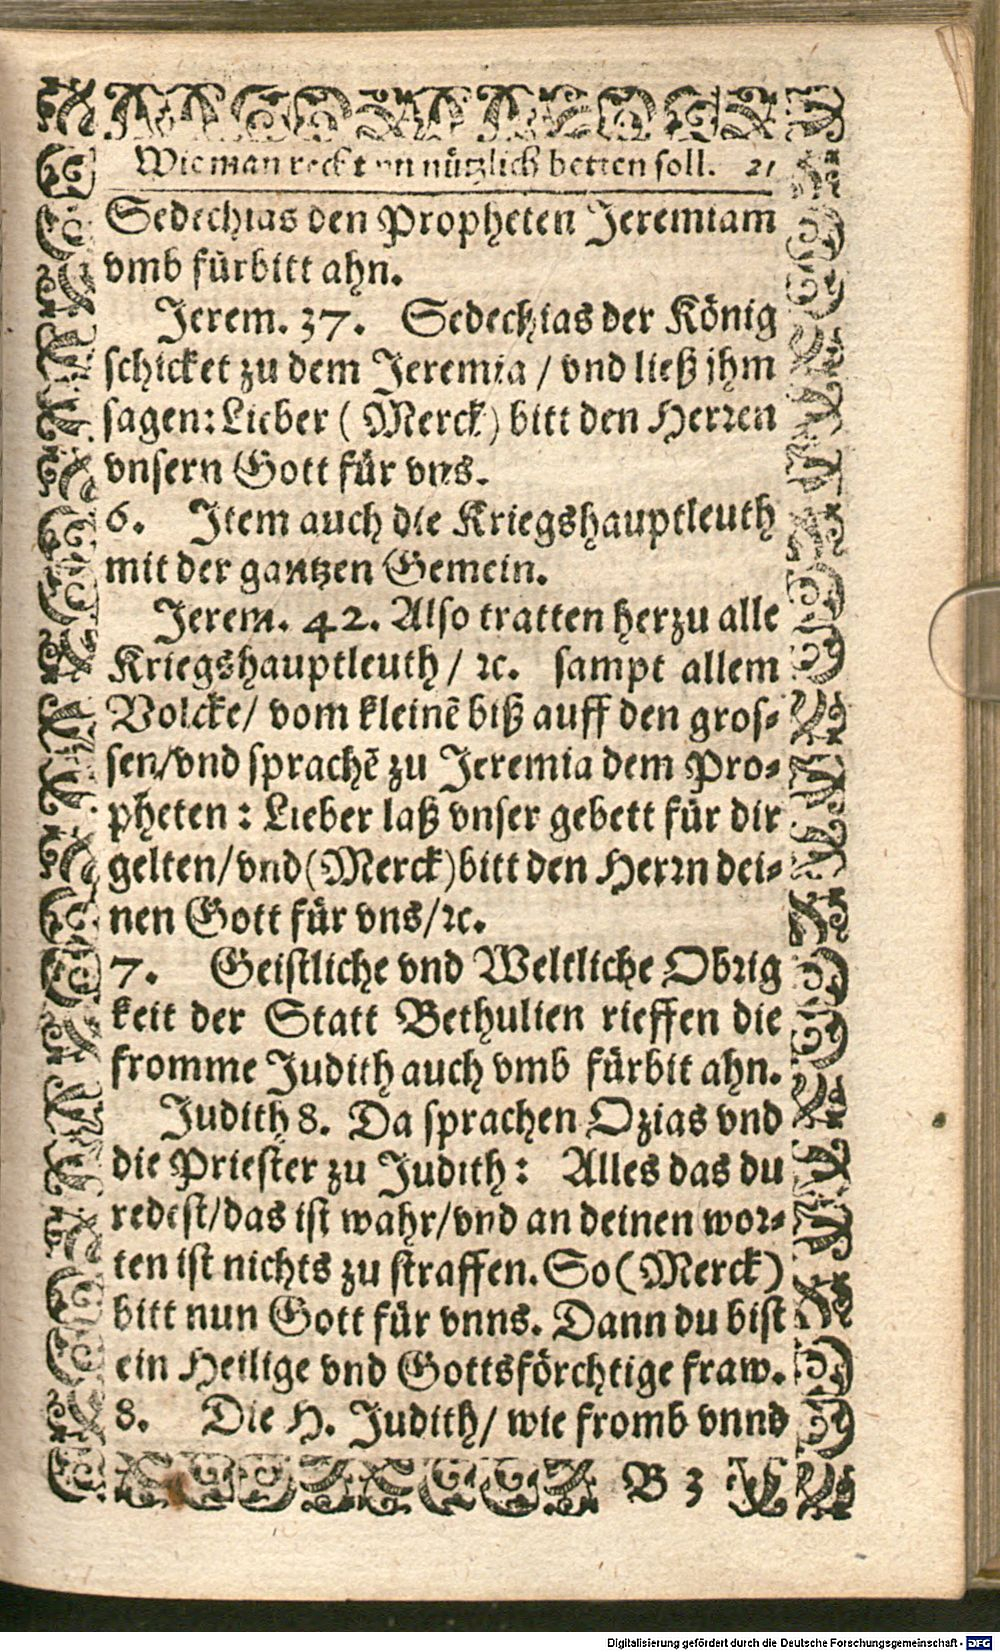 Wie man recht vn nützlich betten soll. 21
Sedechias den Propheten Jeremiam
vmb fürbitt ahn.
Jerem. 37. Sedechias der König
schicket zu dem Jeremia / vnd ließ jhm
sagen: Lieber ( Merck) bitt den Herren
vnsern Gott für vns.
6. Item auch die Kriegshauptleuth
mit der gantzen Gemein.
Jerem. 42. Also tratten herzu alle
Kriegshauptleuth / ꝛc. sampt allem
Volcke/ vom kleinē biß auff den gros-
sen/vnd sprachē zu Jeremia dem Pro-
pheten : Lieber laß vnser gebett für dir
gelten/vnd (Merck) bitt den Herrn dei-
nen Gott für vns/ꝛc.
7. Geistliche vnd Weltliche Obrig
keit der Statt Bethulien rieffen die
fromme Judith auch vmb fürbit ahn.
Judith 8. Da sprachen Ozias vnd
die Priester zu Judith : Alles das du
redest/das ist wahr/vnd an deinen wor-
ten ist nichts zu straffen. So (Merck)
bitt nun Gott für vnns. Dann du bist
ein Heilige vnd Gottsförchtige fraw.
8. Die H. Judith/ wie fromb vnnd
B 3
Digitalisierung gefördert durch die Deutsche Forschungsgemeinschaft - DFG